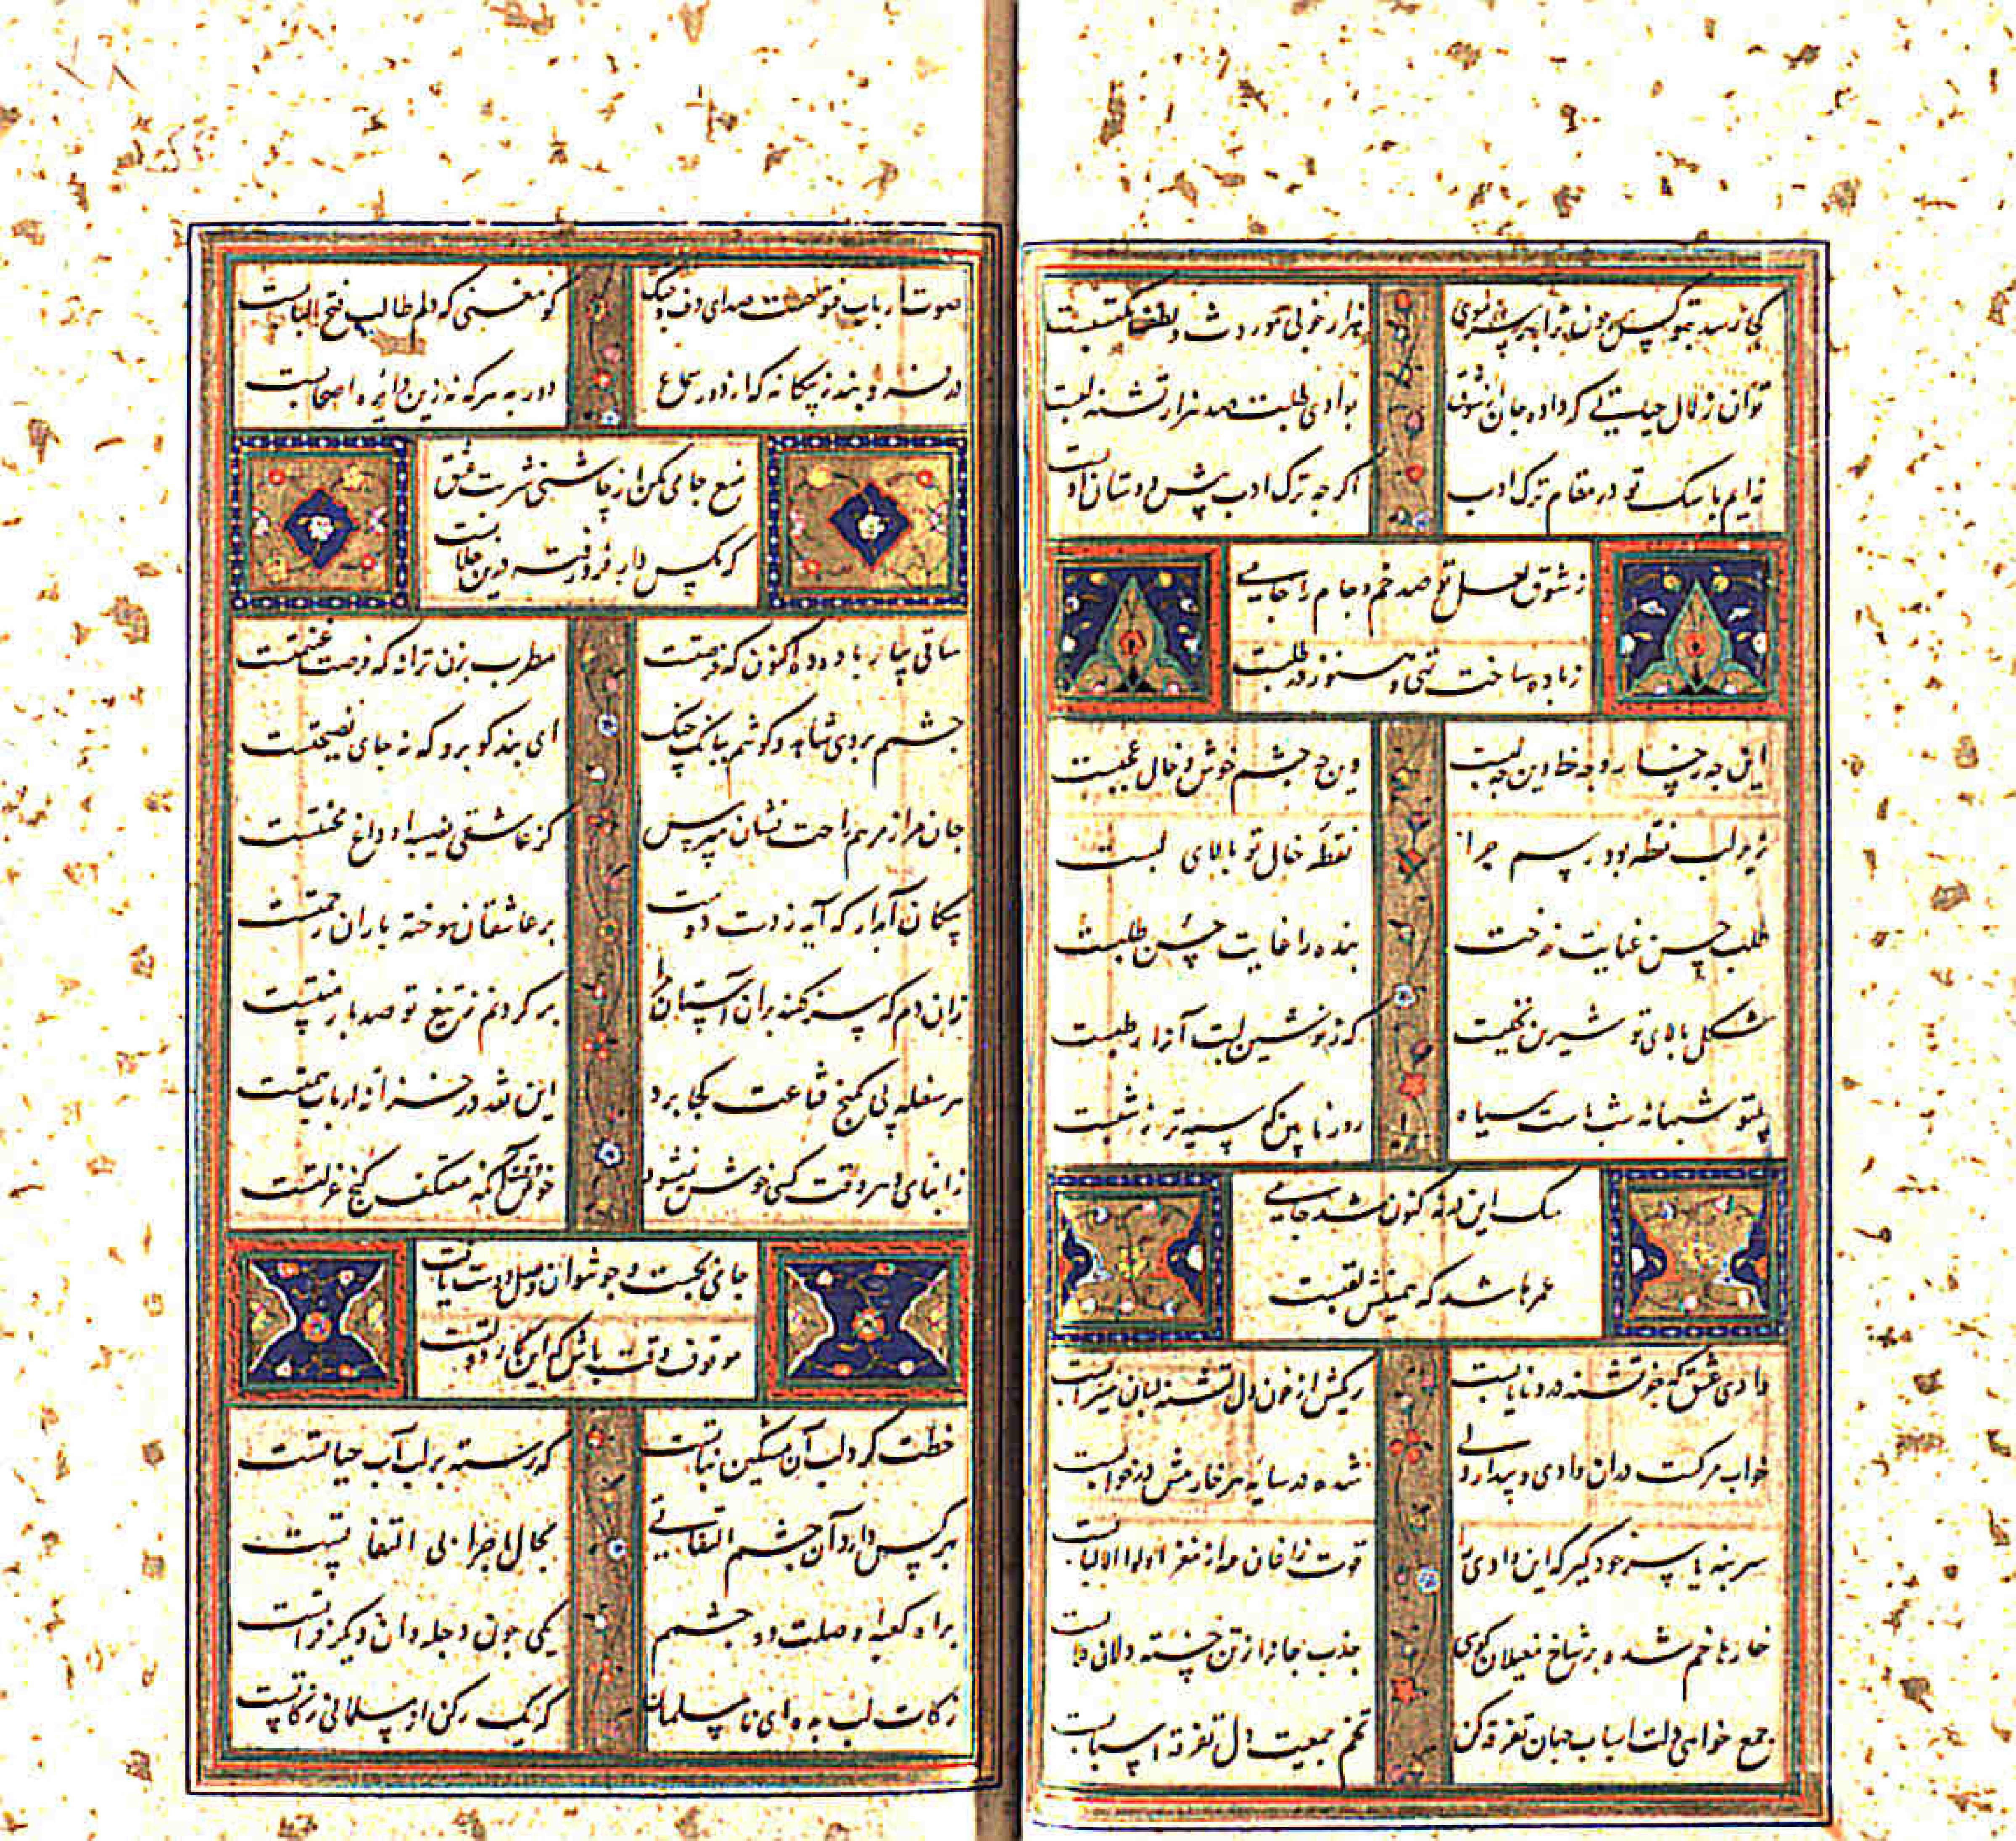 هزار خوبی تو در دش و لطف مکتسبست
توان زلال حیاتی که داده جان از شوق
بوادی طلبت صد هزار تشنه لبست
نه ایم با سک تو در مقام ترک ادب
اکر چه ترک ادب پیش دوستان ادبست
ز شوق لعل تو صد خم و جام را جامی
ز باده ساخت تهی و هنوز در طلبست
این چه رخسار و چه خط وین چه لبست
وین چه چشم خوش و خال عجبست
زیر لب نقطه بود رسم چرا
نقطه خال تو بالای لبست
طلب حسن غنایت نه خوشست
بنده را غایت حسن طلبست
شکل بالای تو شیرین نخلیست
که ز نوشین لبت آنرا رطبست
بیتو شبها نه شبهاست سیاه
روزها بین که سیه تر ز شبست
سک این در نه کنون شد جامی
عمرها شد که همینش لقبست
وادی عشق که جز تشنه درو نایابست
ریکش از خون دل تشنه لبان سیرابست
خواب مرکست دران وادی و بیدار دلی
شده در سایه هر خار منش در خوابست
سر بنه یا پی سر خود کیر که این وادی را
قوت زاغان همه از مغز اولوا الالبابست
خارها خم شده بر شاخ مغیلان کویی
جذب جانرا ز تن خسته دلان قلابست
جمع خواهی دلت اسباب جهان تفرقه کن
تخم جمعیت دل تفرقه اسبابست
صوت ارباب فتوحست صدای دف و چنک
کو مغنی که دلم طالب فتح البابست
در فرو بند ز بیکانه که از دور سماع
دور به هر که نه زین دایره اصحابست
منع جامی مکن از چاشنی شربت عشق
کو مکس وار فرو رفته درین جلابست
ساقی بیار باده که اکنون که فرصتست
مطرب بزن ترانه که فرصت غنیمتست
چشمم بروی شاهد و کوشم ببانک چنک
ای پند کو برو که نه جای نصیحتست
جان مرا ز مرهم راحت نشان مپرس
کز عاشقی نصیب او داغ محنتست
پیکان آبدار که آید ز دست دوست
بر عاشقان سوخته باران رحمتست
زان دم که سر فکند بران آستان مرا
بر کردنم ز تیغ تو صد بار منتست
هر سفله پی بکنج قناعت کجا برد
این نقد در خزانه ارباب همتست
ز ابنای دهر وقت کسی خوش نمیشود
خوش وقت آنکه معتکف کنج عزلتست
جامی بجست و جو نتوان وصل دوست یافت
موقوف وقت باش که این کار دولتست
خطت کرد لب آن مشکین نباتست
که رسته بر لب آب حیاتست
بهر کس دارد آن چشم التفاتی
بحال ما چرا بی التفاتست
براه کعبه وصلت دو چشمم
یکی چون دجله وان دیکر فراتست
زکات لب بده ای نا مسلمان
که یک رکن از مسلمانی زکاتست